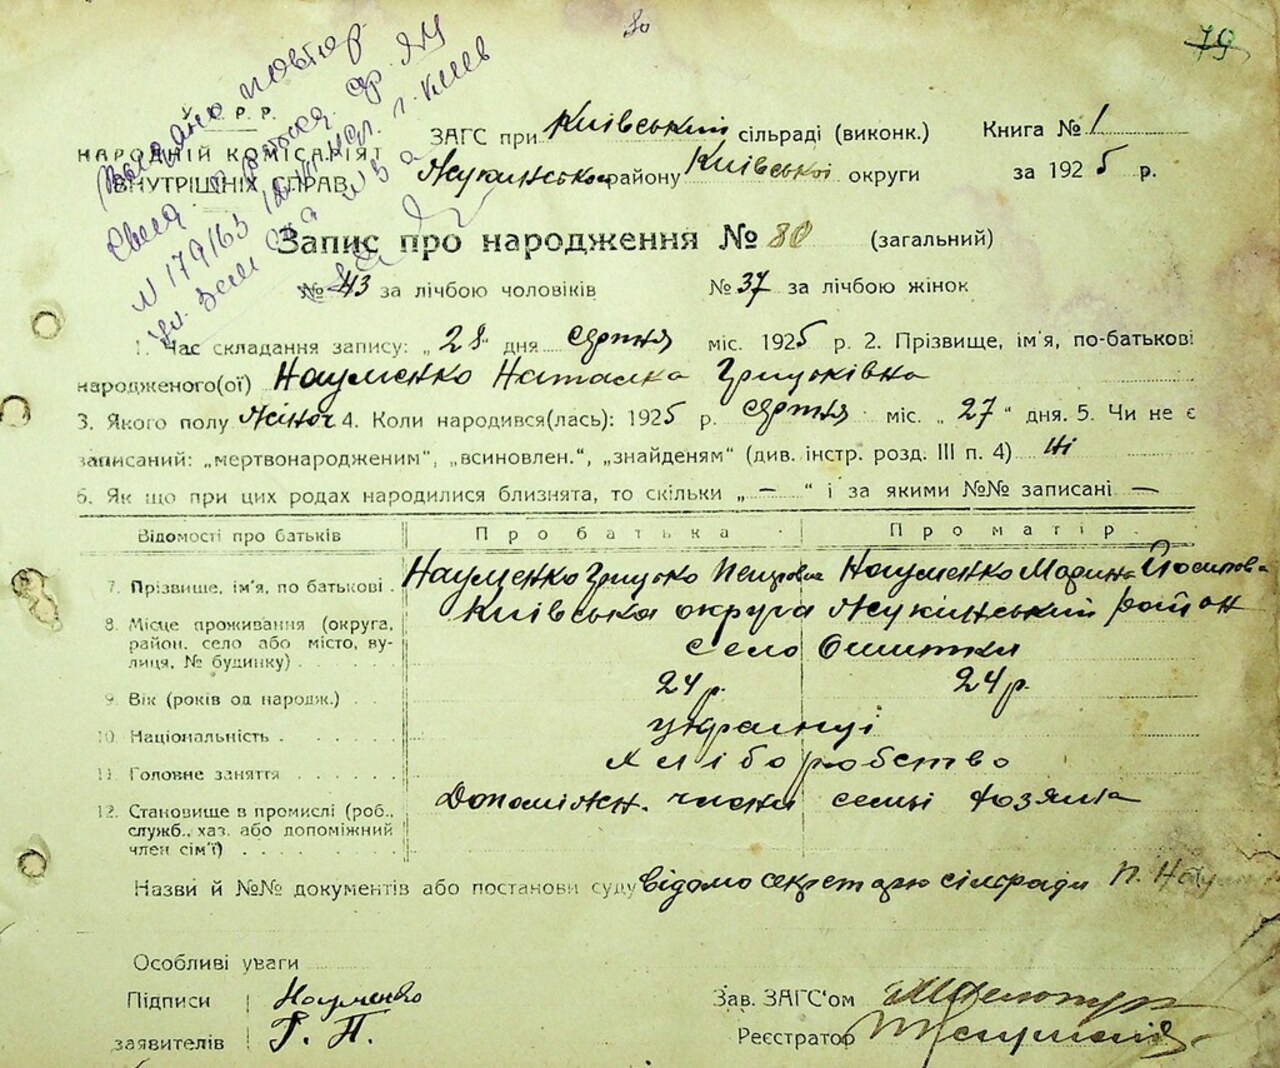 79
У. С. Р. Р.
НАРОДНІЙ КОМІСАРІЯТ
ВНУТРІШНІХ СПРАВ
ЗАГС при Київський сільраді (виконк.) Книга № 1
Жукинського району Київської округи за 1925 р.
Видано повтор
№ 179163
г. Киев
Запис про народження № 80 (загальний)
№ 43 за лічбою чоловіків № 37 за лічбою жінок
1. Час складання запису: „28" дня серпня міс. 1925 р. 2. Прізвище, ім'я, по-батькові
народженого(ої) Науменко Наталка Грицьківна
3. Якого полу жіноч 4. Коли народився(лась): 1925 р. серпня міс. „27" дня. 5. Чи не є
записаний: „мертвонародженим", „всиновлен.", „знайденям" (див. інстр. розд. III п. 4) ні
6. Як що при цих родах народилися близнята, то скільки „—" і за якими №№ записані —
Відомості про батьків Про батька Про матір
7. Прізвище, ім'я, по батькові Науменко Грицько Петрович Науменко Марина Йосипова
8. Місце проживання (округа, район, село або місто, вулиця, № будинку) Київська округа Жукинський район
село Ошитки
9. Вік (років од народж.) 24 р. 24 р.
10. Національність українці
11. Головне заняття хліборобство
12. Становище в промислі (роб., служб., хаз. або допоміжний член сім'ї) Допоміжн. члени семьі хозяїна
Назви й №№ документів або постанови суду відомо секретарю сільради П. Наум
Особливі уваги
Підписи заявителів Науменко
Г. П.
Зав. ЗАГС'ом
Реєстратор